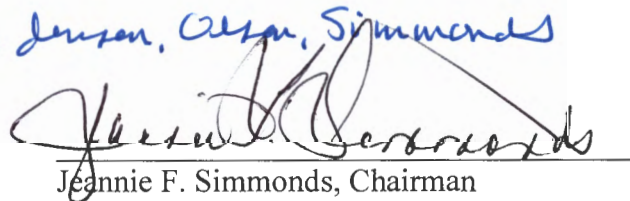 Jensen, Olsen, Simmonds
Jeannie F. Simmonds
Jeannie F. Simmonds, Chairman